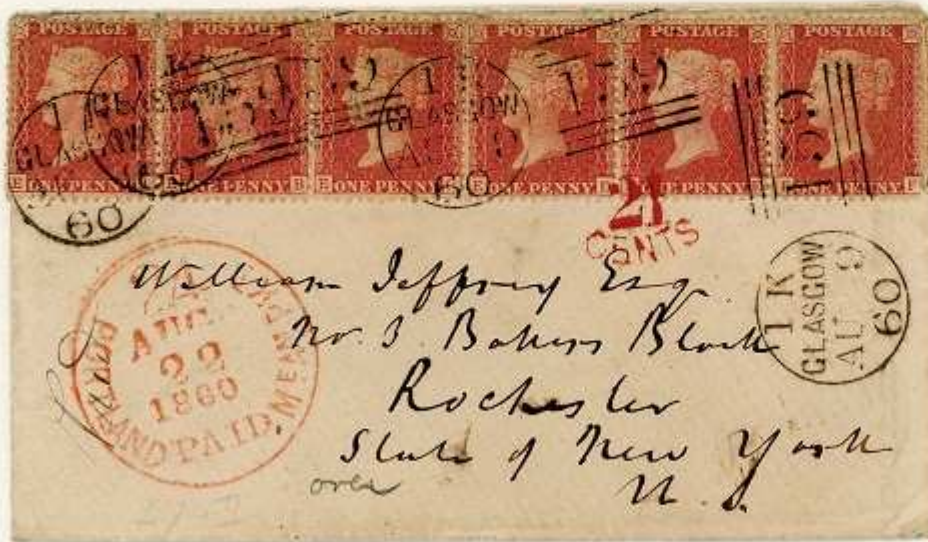 POSTAGE POSTAGE POSTAGE POSTAGE POSTAGE POSTAGE
ONE PENNY ONE PENNY ONE PENNY ONE PENNY ONE PENNY ONE PENNY
1 K
GLASGOW
60
1
GLASGOW
60
1
GLASGOW
60
159
159
159
21
CENTS
1 K
GLASGOW
AU 9
60
AUG
22
1860
PORTLAND PAID. ME AM PKT
William Jeffrey Esq.
No. 3 Bakers Block
Rochester
State of New York
U.S.
over